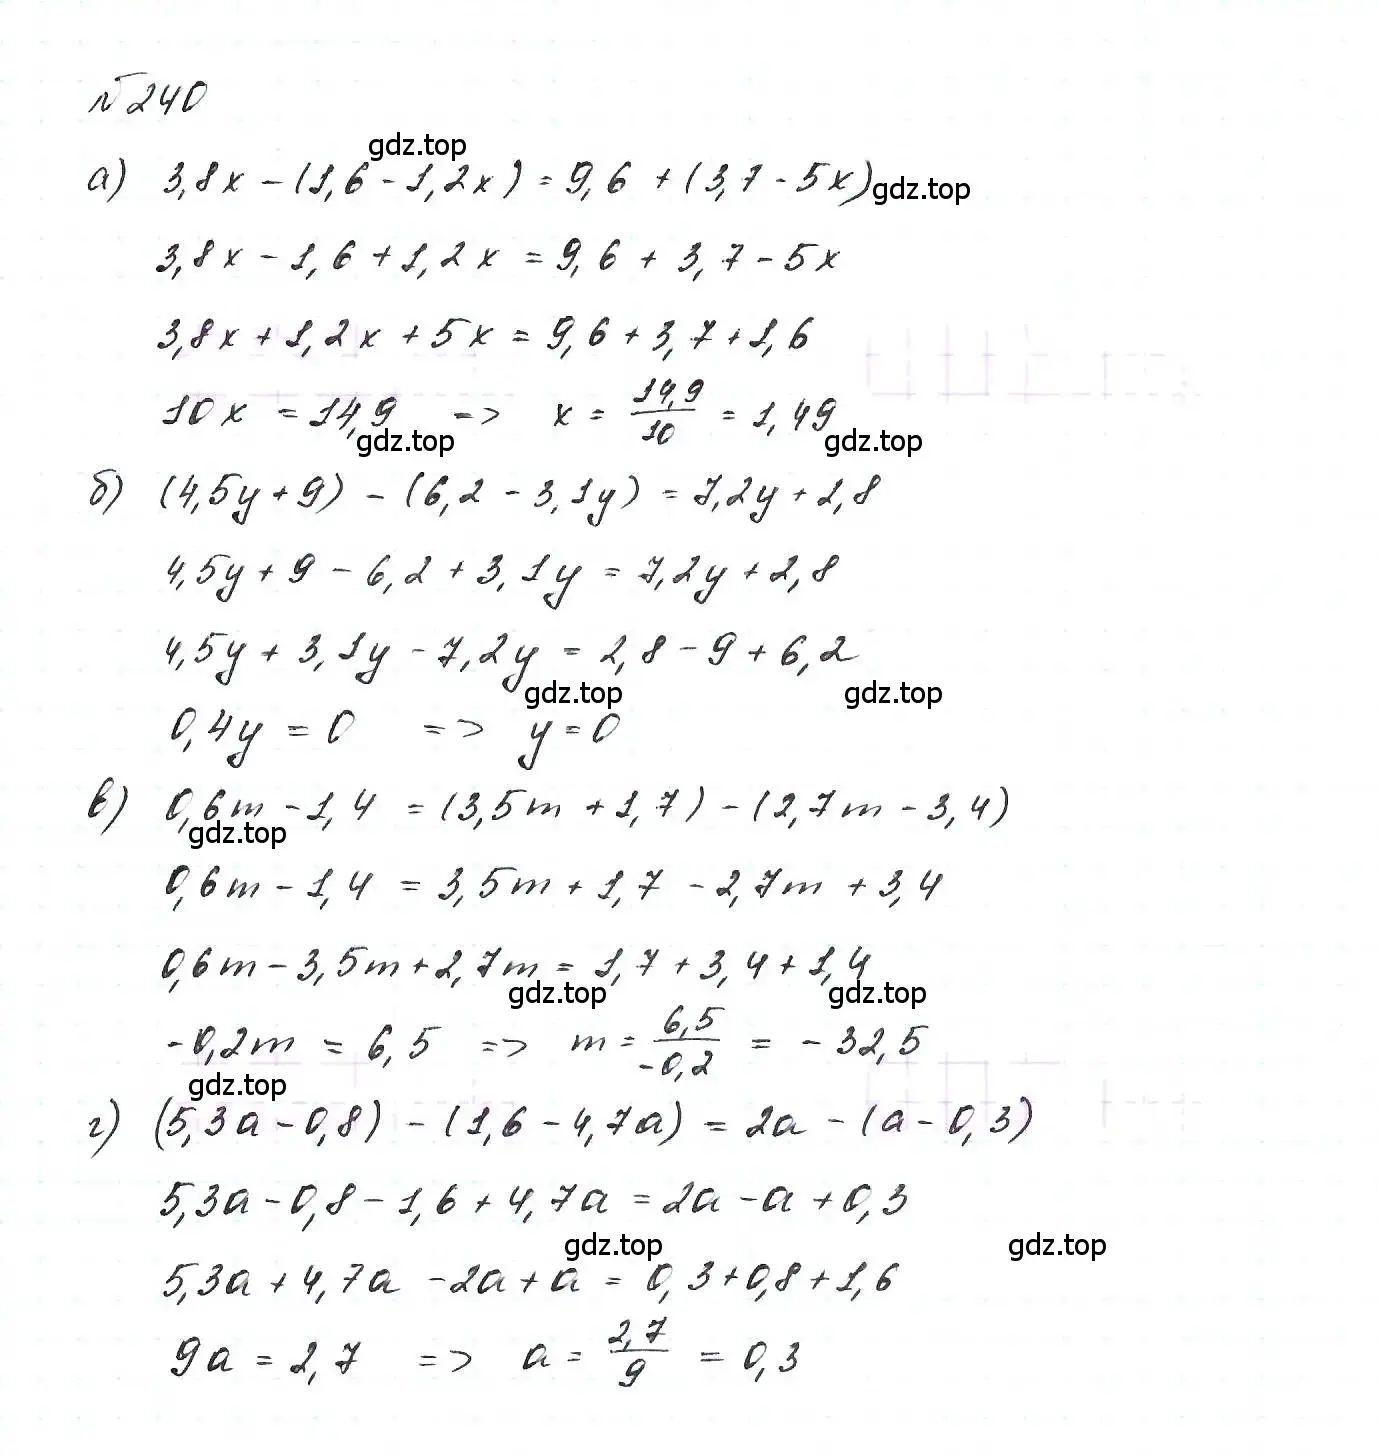 №240
gdz.top
а) 3,8x - (1,6 - 1,2x) = 9,6 + (3,7 - 5x) gdz.top
3,8x - 1,6 + 1,2x = 9,6 + 3,7 - 5x
3,8x + 1,2x + 5x = 9,6 + 3,7 + 1,6
10x = 14,9 => x = 14,9/10 = 1,49
gdz.top gdz.top
б) (4,5y + 9) - (6,2 - 3,1y) = 7,2y + 2,8
4,5y + 9 - 6,2 + 3,1y = 7,2y + 2,8
4,5y + 3,1y - 7,2y = 2,8 - 9 + 6,2
gdz.top gdz.top
0,4y = 0 => y = 0
в) 0,6m - 1,4 = (3,5m + 1,7) - (2,7m - 3,4)
gdz.top
0,6m - 1,4 = 3,5m + 1,7 - 2,7m + 3,4
0,6m - 3,5m + 2,7m = 1,7 + 3,4 + 1,4
gdz.top gdz.top
-0,2m = 6,5 => m = 6,5/-0,2 = -32,5
gdz.top
г) (5,3a - 0,8) - (1,6 - 4,7a) = 2a - (a - 0,3)
5,3a - 0,8 - 1,6 + 4,7a = 2a - a + 0,3
gdz.top gdz.top
5,3a + 4,7a - 2a + a = 0,3 + 0,8 + 1,6
9a = 2,7 => a = 2,7/9 = 0,3